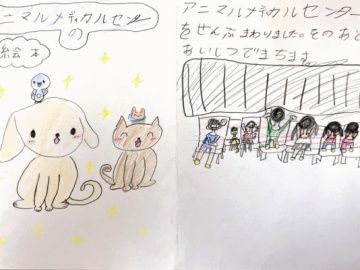 アニマルメディカルセンター
の
絵本
アニマルメディカルセンター
をぜんぶまわりました。そのあと
あいしつでまちます。